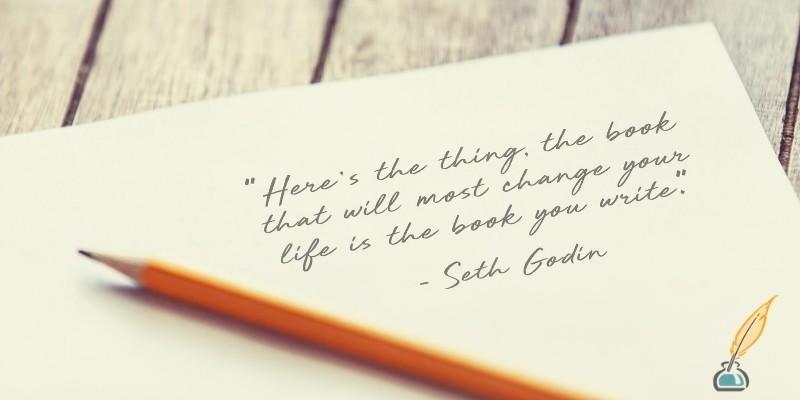 "Here's the thing, the book
that will most change your
life is the book you write".
- Seth Godin